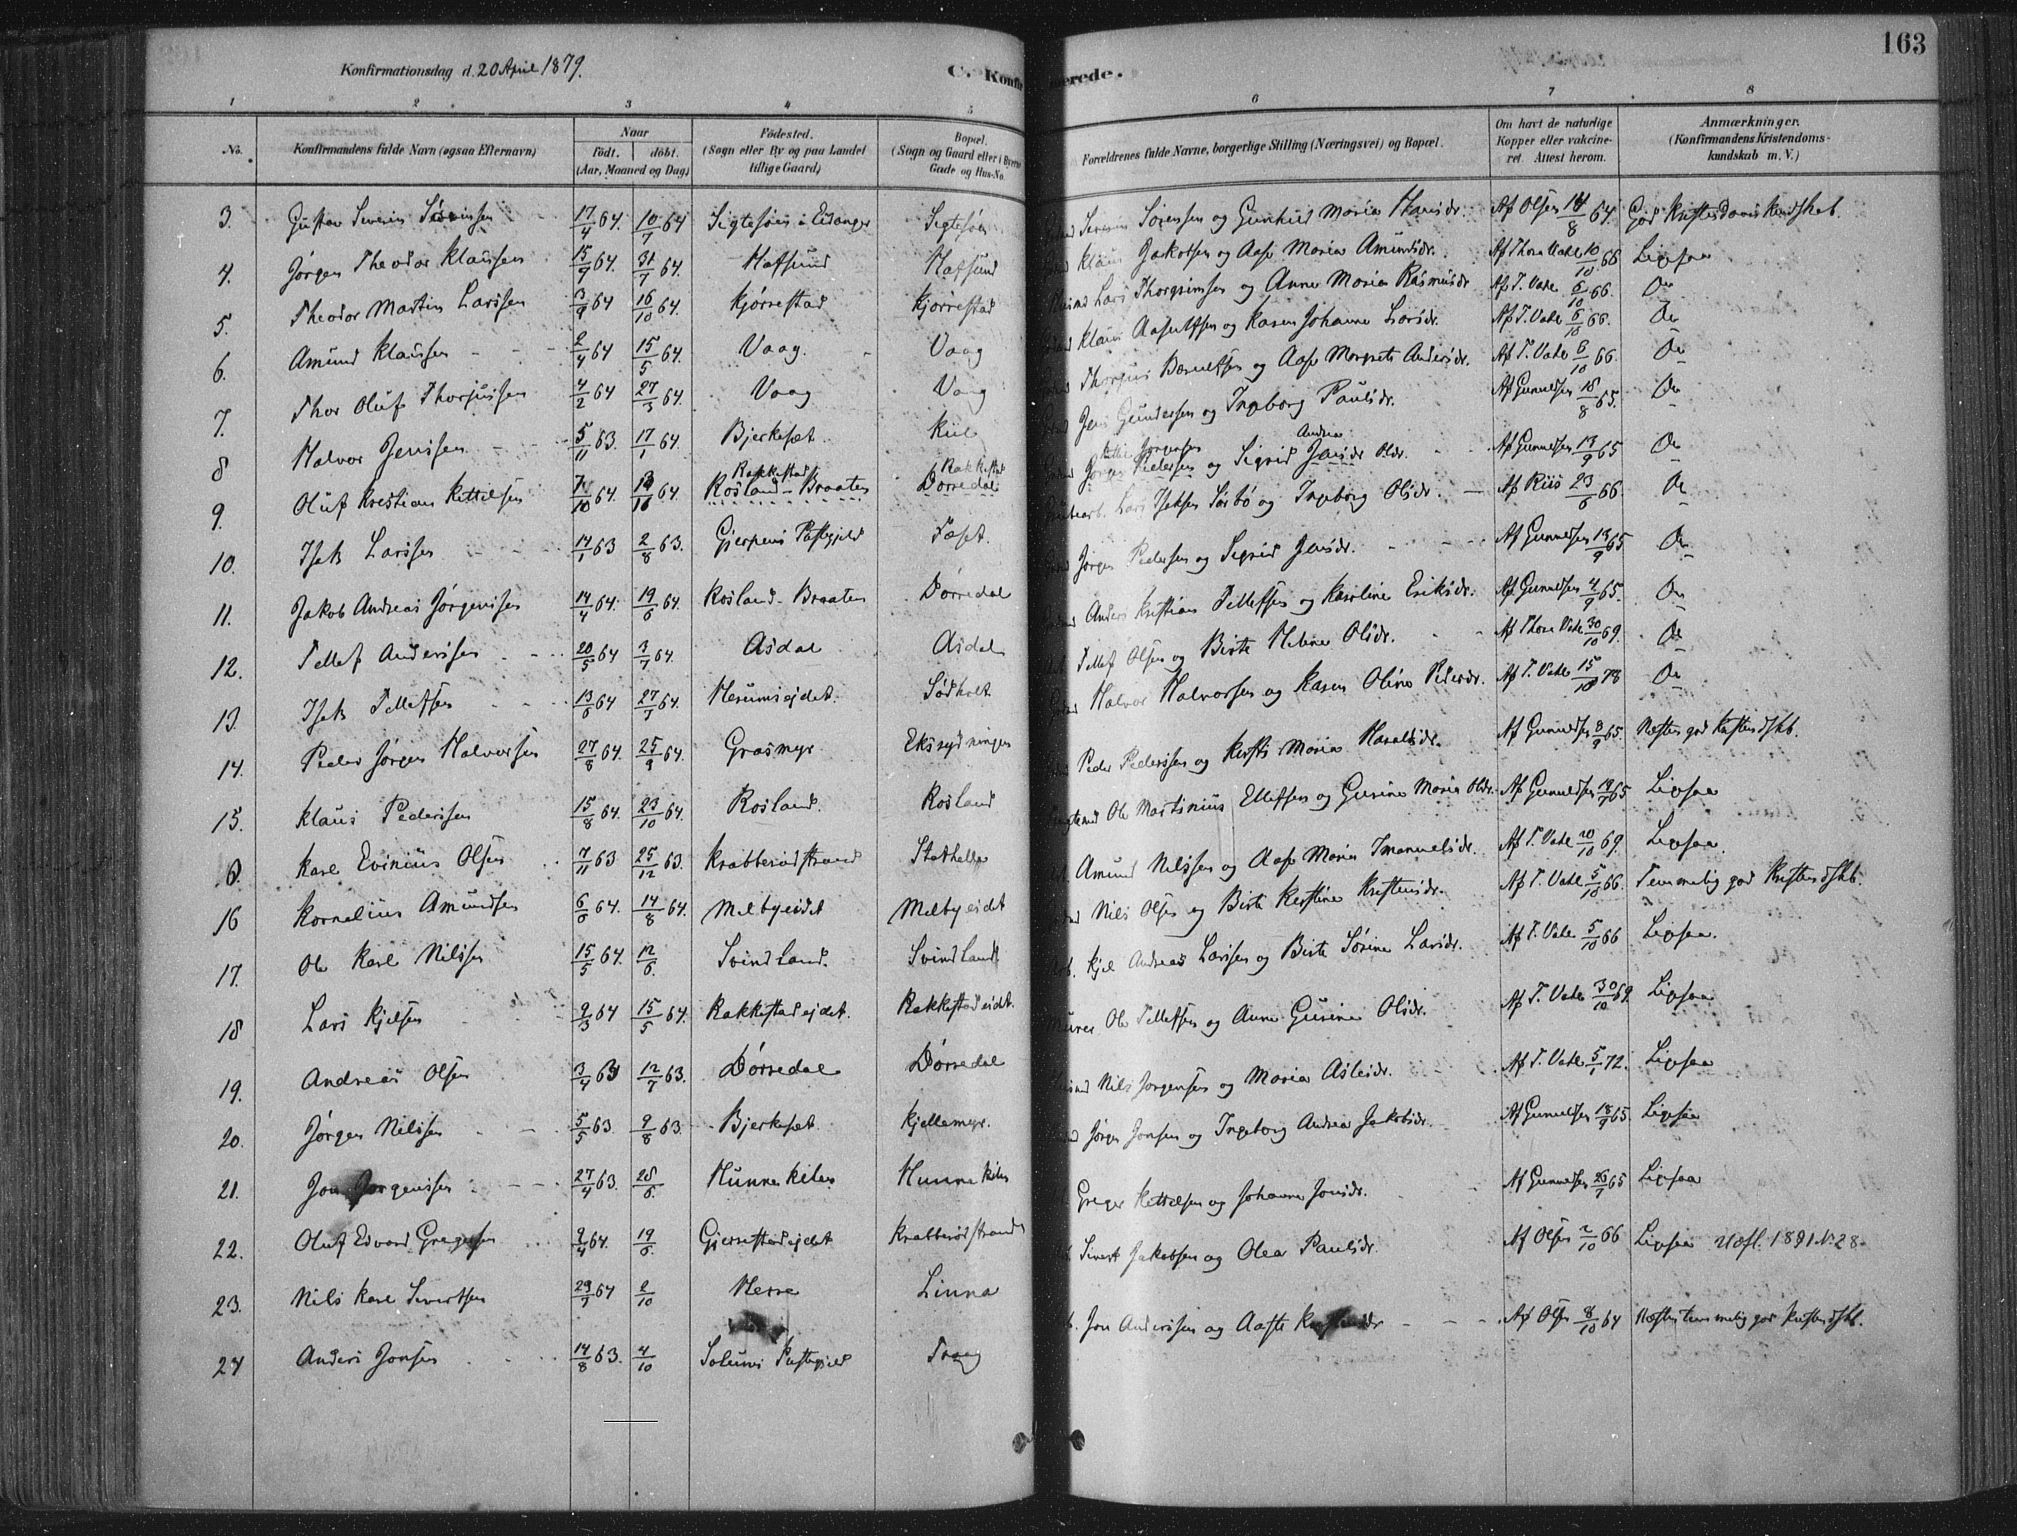 163
Konfirmationsdag d. 20 April 1879.
C. Konfir
merede.
1 2 3 4 5 6 7 8
No. Konfirmandens fulde Navn (ogsaa Efternavn)
Naar
födt. döbt.
(Aar, Maaned og Dag)
Födested.
(Sogn eller By og paa Landet
tillige Gaard)
Bopæl.
(Sogn og Gaard eller i Byerne
Gade og Hus-No.
Forældrenes fulde Navne, borgerlige Stilling (Næringsvei) og Bopæl.
Om havt de naturlige
Kopper eller vakcine-
ret. Attest herom.
Anmærkninger.
(Konfirmandens Kristendoms-
kundskab m. V.)
3. Gustav Severin Sørensen 17/4 64. 10/7 64 Sigtesøen i Eidanger Sigtesøen Severin Sørensen og Gunhild Maria Hansdr. Af Olsen 14/8 64. God Kristendomskundskab.
4. Jørgen Theodor Klausen 15/9 64. 31/7 64. Hafsund Hafsund Klaus Jakobsen og Aase Maria Amundsdr. Af Thora Vahl 10/10 66 Ligesaa
5. Theodor Martin Larsen 3/9 64 16/10 64. Kjørrestad Kjørrestad Lars Thorgrimsen og Anne Maria Rasmusdr. Af T. Vahl 6/10 66. Do
6. Amund Klausen 2/4 64 15/5 64. Vaag. Vaag Klaus Aaselfsen og Karen Johanne Larsdr. Af T. Vahl 6/10 66. Do
7. Thor Oluf Thorjussen 4/2 64 27/3 64. Vaag Vaag Thorjus Berentsen og Aase Margrete Andersdr. Af T. Vahl 6/10 66. Do
8 Halvor Jensen 5/11 63. 17/1 64. Bjerkeset Kiil Jens Gundersen og Ingeborg Paulsdr. Af Gunneldsen 18/8 65. Do
9. Oluf Kristian Kittelsen 7/10 64. 64. Rakkestad Rosland-Braaten Rakkestad Dørredal Kittil Jørgensen Jørgen Pedersen og Sigrid Andrea Jensdr. Olsdr. Af Gunneldsen 13/9 65 Do
10. Isak Larsen 14/1 63 2/8 63. Gjerpens Prestegjeld Taset. Lars Isaksen Sørbø og Ingeborg Olsdr. Af Riis 23/6 66. Do
11. Jakob Andreas Jørgensen 14/4 64. 19/6 64. Rosland-Braaten Dørredal Jørgen Pedersen og Sigrid Jensdr. Af Gunneldsen 13/9 65 Do
12. Tellef Andersen 20/5 64 3/7 64. Asdal Asdal Anders Kristian Tellefsen og Karoline Eriksdr. Af Gunneldsen 4/9 65. Do
13. Isak Tellefsen 13/6 64. 27/7 64. Herumseidet. Sødholt Tellef Olsen og Birte Helene Olsdr. Af Thora Vahl 30/10 69. Do
14. Peder Jørgen Halvorsen 27/8 64. 25/9 64. Grasmyr Ekssydningen Halvor Halvorsen og Karen Oline Pedersdr. Af T. Vahl 15/10 78 Do
15. Klaus Pedersen 15/8 64. 23/10 64. Rosland. Rosland Peder Pedersen og Kersti Maria Haraldsdr. Af Gunneldsen 8/9 65. Næsten god Kristendskb.
6. Karl Evinius Olsen 7/11 63 25/12 63. Krabberødstrand Stathelle Ole Martinius Ellefsen og Gurine Maria Olsdr. Af Gunneldsen 19/7 65 Ligesaa
16 Kornelius Amundsen 6/6 64. 14/8 64. Melbyeidet Melbyeidet Amund Nilssen og Aase Maria Imanuelsdr. Af T. Vahl 20/10 69. Ligesaa.
17. Ole Karl Nilssen 15/5 64. 12/6. Svindland. Svindland Nils Olsen og Birte Kirstine Kristensdr. Af T. Vahl 5/10 66. Temmelig god Kristendskb.
18 Lars Kjelsen 9/3 64 15/5 64. Rakkestadeidet. Rakkestadeidet. Kjel Andreas Larsen og Birte Sørine Larsdr. Af T. Vahl 5/10 66 Ligesaa.
19. Andreas Olsen 3/4 63 12/7 63. Dørredal Dørredal Murer Ole Tellefsen og Anne Gurine Olsdr. Af T. Vahl 30/10 69. Ligesaa
20. Jørgen Nilssen 5/5 63. 9/8 63. Bjerkeset Kjellemyr. Nils Jørgensen og Maria Asleisdr. Af T. Vahl 5/1 72. Ligesaa
21. Jon Jørgensen 27/4 63. 28/6. Hunnekilen Hunnekilen Jørgen Jonsen og Ingeborg Andrea Jakobsdr. Af Gunneldsen 18/9 65. Ligesaa
22. Oluf Edvard Gregersen 9/4 64. 19/6. Gjerrestadeidet Krabberødstrand Greger Kittelsen og Johanne Jonsdr. Af Gunneldsen 26/7 65 Ligesaa
23. Nils Karl Sivertsen 29/7 64 2/10 Herre Linna Sivert Jakobsen og Olea Paulsdr. Af Olsen 2/10 66 Ligesaa Udfl. 1891 No 28.
24 Anders Jonsen 14/8 63. 4/10 Solums Prestegjeld Traag Jon Andersen og Aaste Kristensdr Af Olsen 8/10 64 Næsten temmelig god Kristendskb.